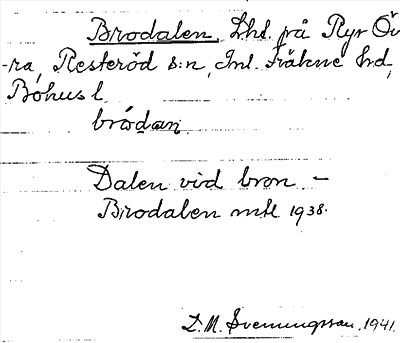 Brodalen, Lht. på Ryr Öv
-ra, Resteröd s:n, Inl. Fräkne hd,
Bohus l.
brödan.
Dalen vid bron –
Brodalen mtl 1938.
D. M. Svenungsson. 1941.